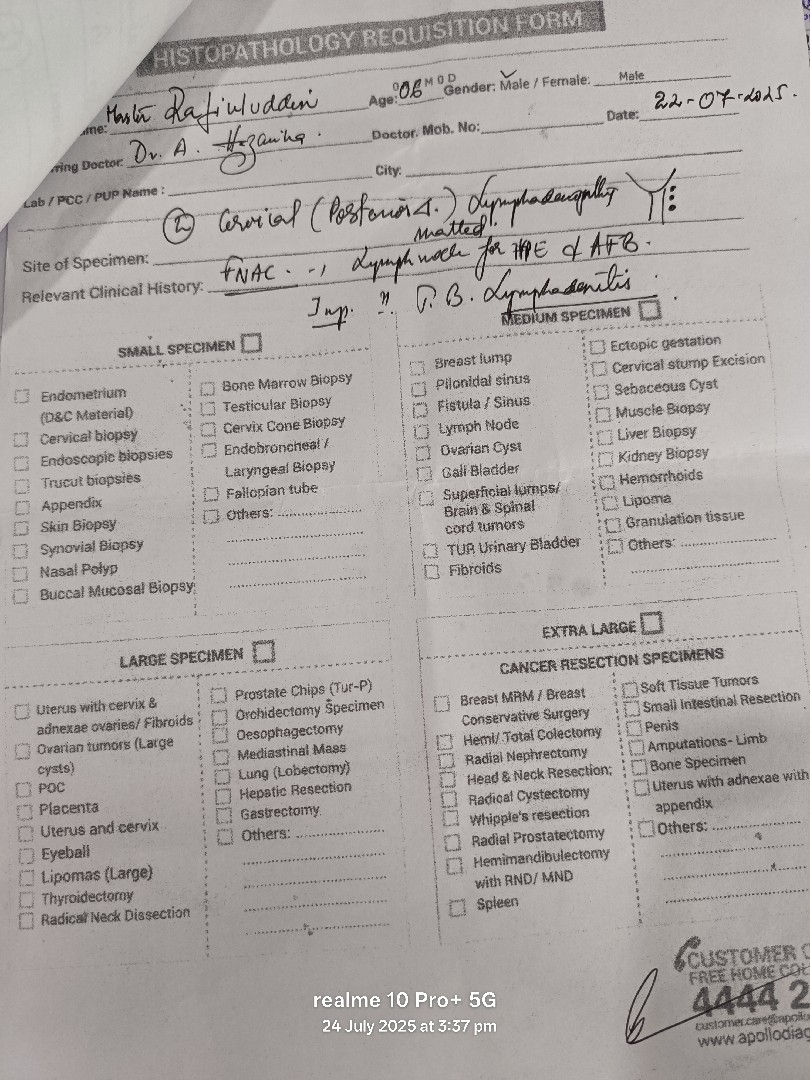 HISTOPATHOLOGY REQUISITION FORM
me: Master Rafiuluddin Age: 06 Y M D Gender: Male / Female: Male
rring Doctor: Dr. A. Hazarika. Doctor. Mob. No: Date: 22-07-2025.
Lab / PCC / PUP Name : City:
Cervical (Posterior Δ.) Lymphadenopathy
matted.
Site of Specimen:
Relevant Clinical History: FNAC. Lymph node for HPE & AFB.
Imp. ?? T.B. Lymphadenitis.
SMALL SPECIMEN
Endometrium
(D&C Material)
Cervical biopsy
Endoscopic biopsies
Trucut biopsies
Appendix
Skin Biopsy
Synovial Biopsy
Nasal Polyp
Buccal Mucosal Biopsy
Bone Marrow Biopsy
Testicular Biopsy
Cervix Cone Biopsy
Endobroncheal /
Laryngeal Biopsy
Fallopian tube
Others: ....................
MEDIUM SPECIMEN
Breast lump
Pilonidal sinus
Fistula / Sinus
Lymph Node
Ovarian Cyst
Gall Bladder
Superficial lumps/
Brain & Spinal
cord tumors
TUR Urinary Bladder
Fibroids
Ectopic gestation
Cervical stump Excision
Sebaceous Cyst
Muscle Biopsy
Liver Biopsy
Kidney Biopsy
Hemorrhoids
Lipoma
Granulation tissue
Others: ....................
LARGE SPECIMEN
Uterus with cervix &
adnexae ovaries/ Fibroids
Ovarian tumors (Large
cysts)
POC
Placenta
Uterus and cervix
Eyeball
Lipomas (Large)
Thyroidectomy
Radical Neck Dissection
Prostate Chips (Tur-P)
Orchidectomy Specimen
Oesophagectomy
Mediastinal Mass
Lung (Lobectomy)
Hepatic Resection
Gastrectomy
Others: ....................
EXTRA LARGE
CANCER RESECTION SPECIMENS
Breast MRM / Breast
Conservative Surgery
Hemi/ Total Colectomy
Radial Nephrectomy
Head & Neck Resection;
Radical Cystectomy
Whipple's resection
Radial Prostatectomy
Hemimandibulectomy
with RND/ MND
Spleen
Soft Tissue Tumors
Small Intestinal Resection
Penis
Amputations- Limb
Bone Specimen
Uterus with adnexae with
appendix
Others: ....................
CUSTOMER C
FREE HOME COL
4444 2
customer.care@apollo
www.apollodiag
realme 10 Pro+ 5G
24 July 2025 at 3:37 pm